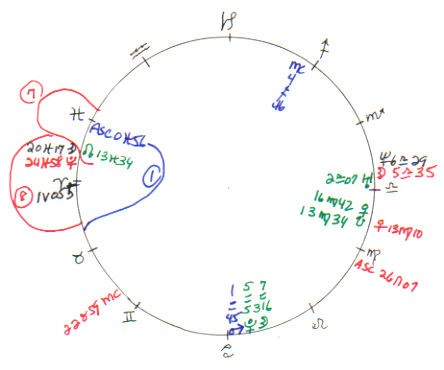 ♑
♐
mc
4
46
♒
⑦
♓
♏
ASC 0 ♓ 56
20 ♓ 17 ☽
☊ 13 ♓ 34
24 ♓ 58
①
♆ 6 ♎ 29
☽ 5 ♎ 35
2 ♎ 07 ♅
♎
♈
⑧
16 ♍ 42 ♀
13 ♍ 34 ☋
♀ 13 ♍ 10
♉
♍
ASC 26 ♌ 07
22 ♉ 59 mc
♊
1 5 7
53 16
45
♌
♋